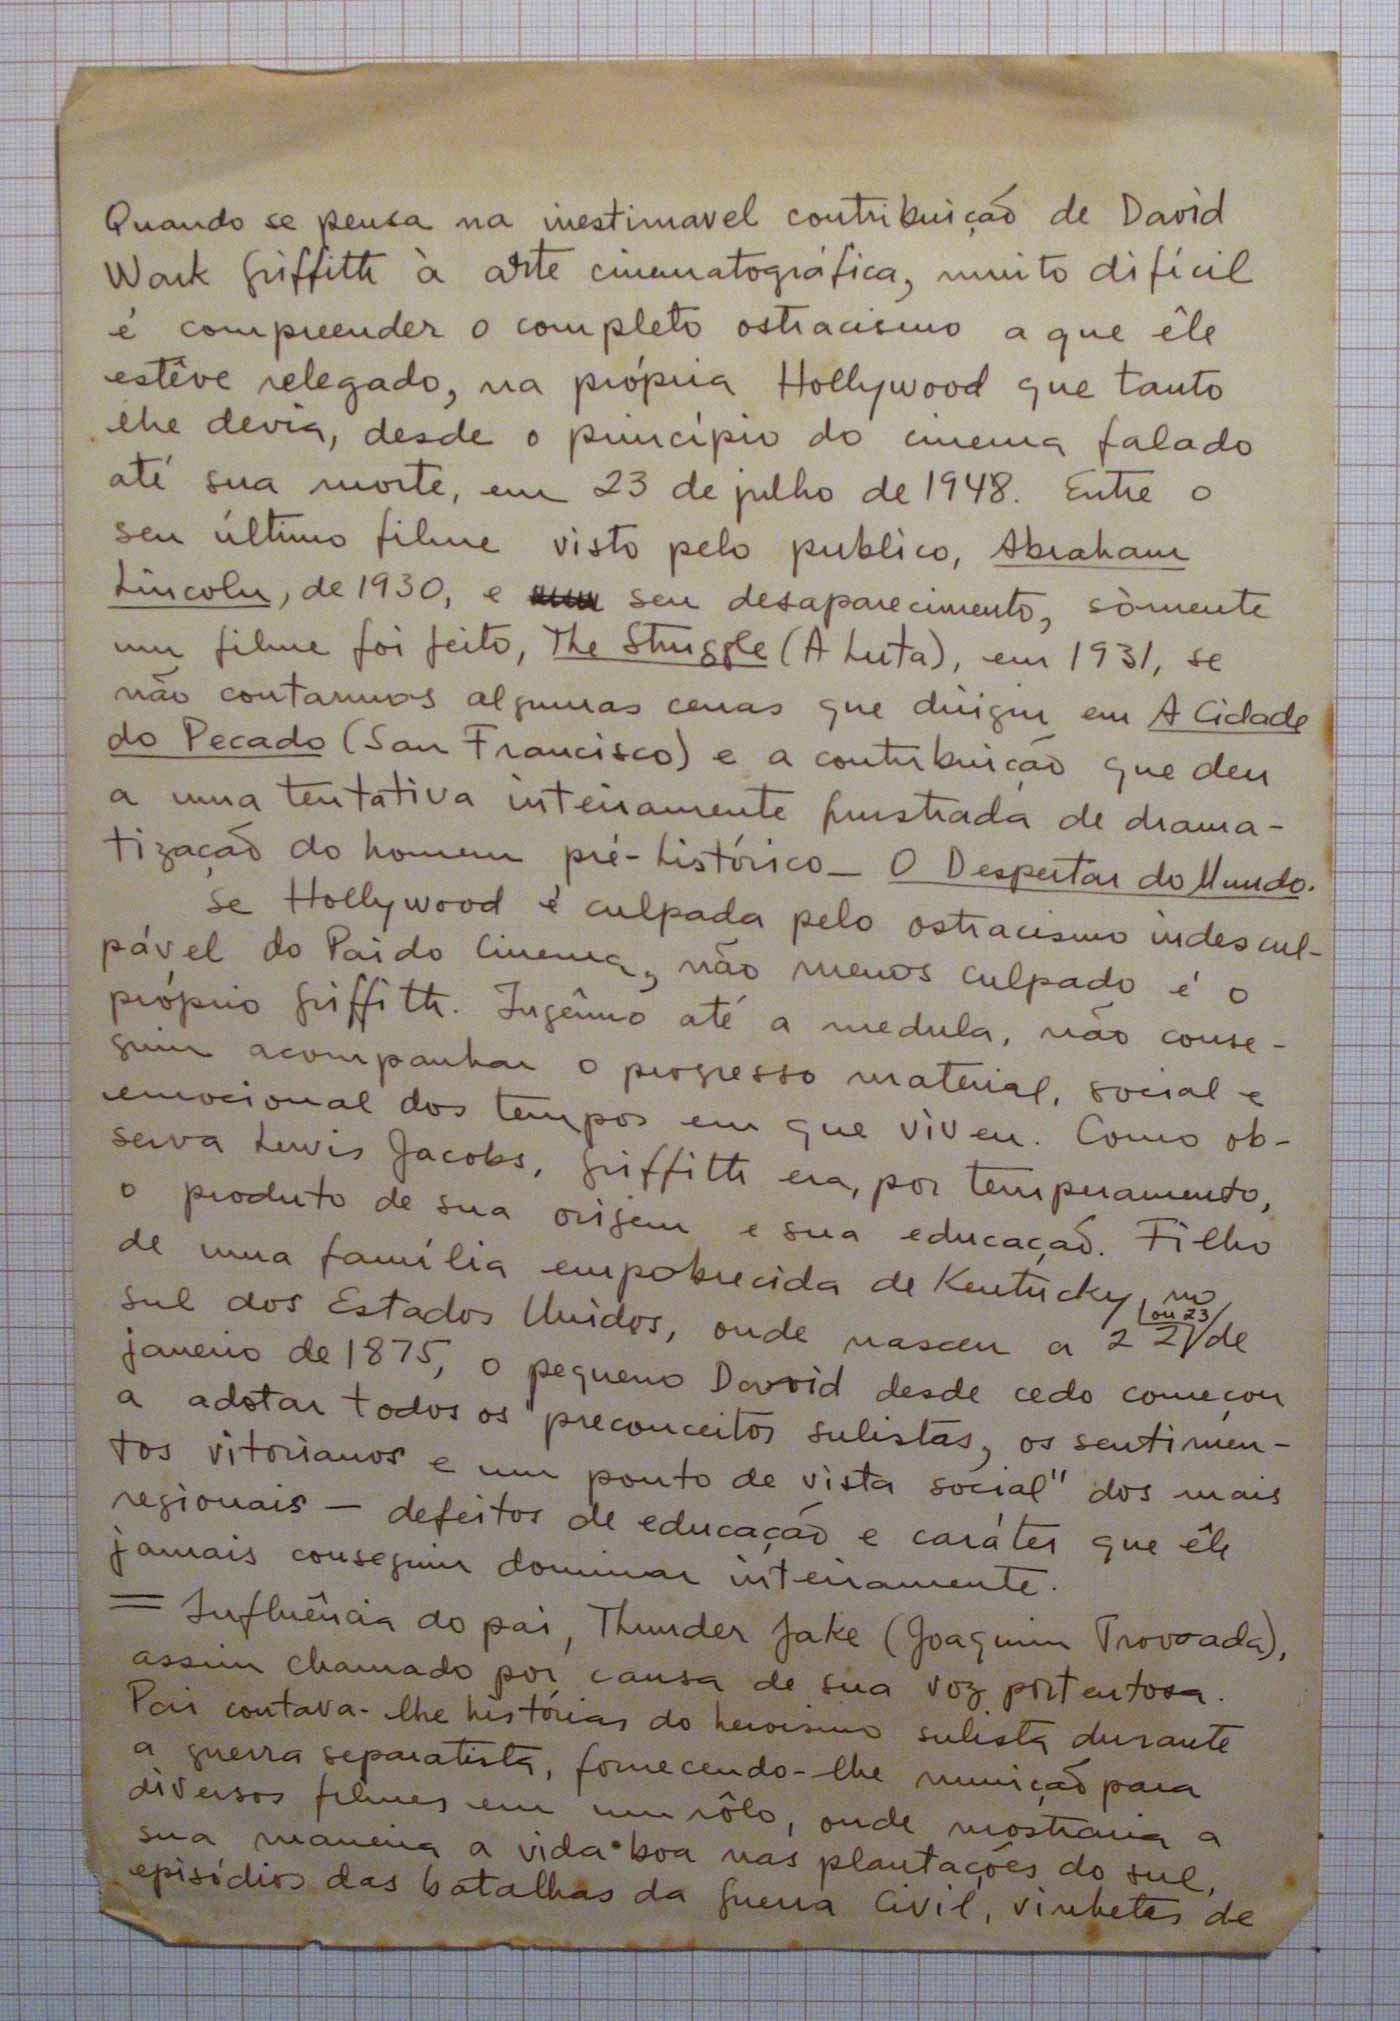 Quando se pensa na inestimavel contribuição de David
Wark Griffith à arte cinematográfica, muito difícil
é compreender o completo ostracismo a que êle
estêve relegado, na própria Hollywood que tanto
lhe devia, desde o princípio do cinema falado
até sua morte, em 23 de julho de 1948. Entre o
seu último filme visto pelo publico, Abraham
Lincoln, de 1930, e seu desaparecimento, sòmente
um filme foi feito, The Struggle (A Luta), em 1931, se
não contarmos algumas cenas que dirigiu em A Cidade
do Pecado (San Francisco) e a contribuição que deu
a uma tentativa inteiramente frustrada de drama-
tização do homem pré-histórico — O Despertar do Mundo.
Se Hollywood é culpada pelo ostracismo indescul-
pável do Pai do Cinema, não menos culpado é o
próprio Griffith. Ingênuo até a medula, não conse-
guiu acompanhar o progresso material, social e
emocional dos tempos em que viveu. Como ob-
serva Lewis Jacobs, Griffith era, por temperamento,
o produto de sua origem e sua educação. Filho
de uma família empobrecida de Kentucky, no
sul dos Estados Unidos, onde nasceu a 22 ou 23 de
janeiro de 1875, o pequeno David desde cedo começou
a adotar todos os "preconceitos sulistas, os sentimen-
tos vitorianos e um ponto de vista social" dos mais
regionais — defeitos de educação e caráter que êle
jamais conseguiu dominar inteiramente.
= Influência do pai, Thunder Jake (Joaquim Trovoada),
assim chamado por causa de sua voz portentosa.
Pai contava-lhe histórias do heroismo sulista durante
a guerra separatista, fornecendo-lhe munição para
diversos filmes em um rôlo, onde mostraria a
sua maneira a vida boa nas plantações do sul,
episódios das batalhas da Guerra Civil, vinhetas de